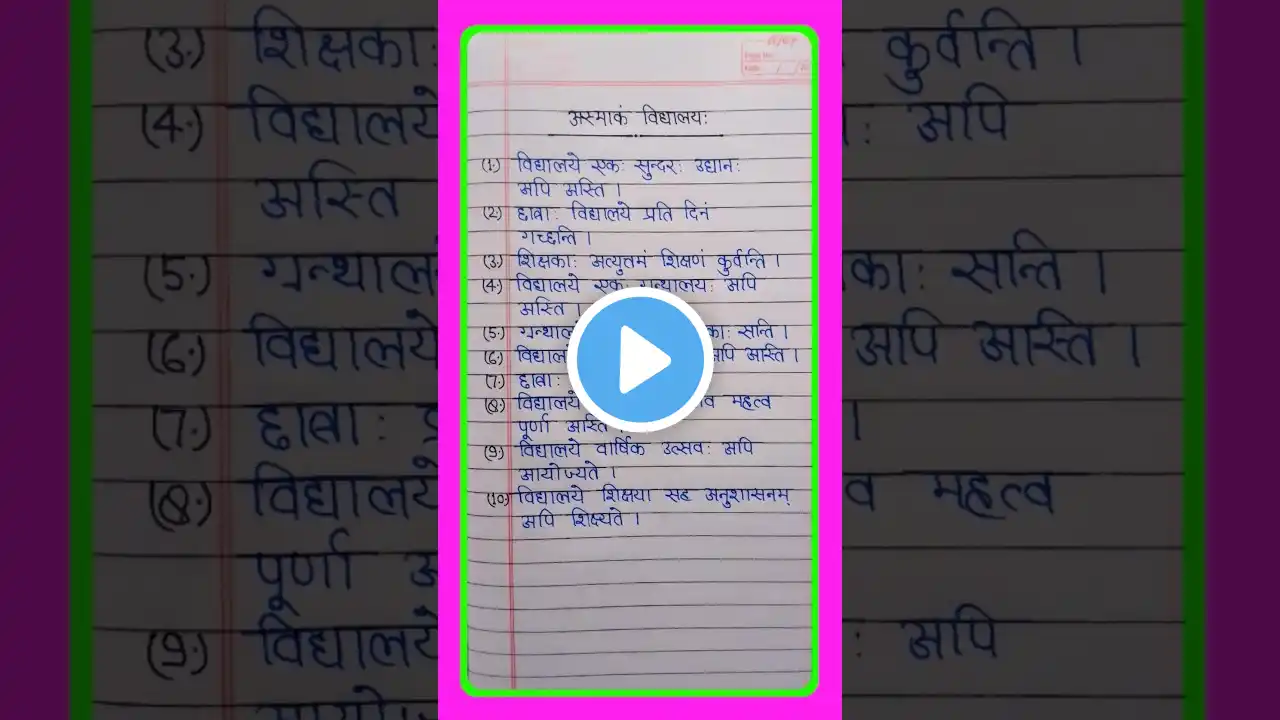 अस्माकं विद्यालयः
(1) विद्यालये एकः सुन्दरः उद्यानः
अपि अस्ति ।
(2) छात्राः विद्यालये प्रति दिनं
गच्छन्ति ।
(3) शिक्षकाः अत्युतमं शिक्षणं कुर्वन्ति ।
(4) विद्यालये एकः ग्रन्थालयः अपि
अस्ति ।
(5) सन्ति ।
(6) अपि अस्ति ।
(7) छात्राः
(8) विद्यालये महत्व
पूर्णा अस्ति ।
(9) विद्यालये वार्षिक उत्सवः अपि
आयोज्यते ।
(10) विद्यालये शिक्षया सह अनुशासनम्
अपि शिक्ष्यते ।